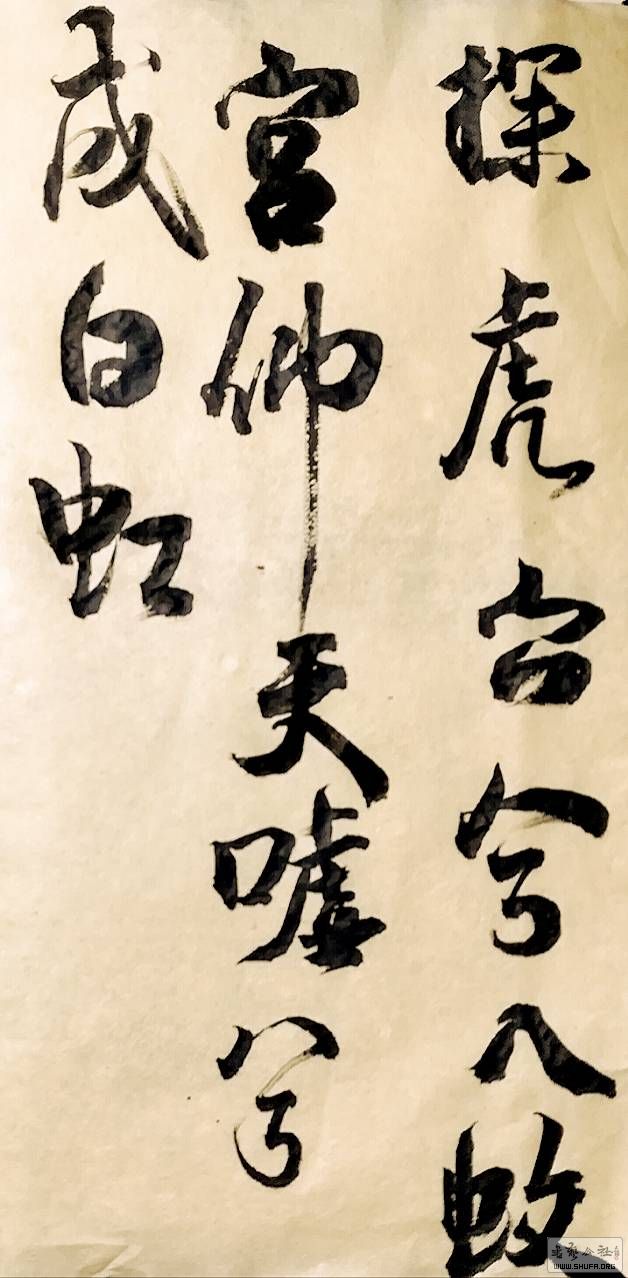 探虎穴兮入蛟
宮仰天嘘兮
成白虹
書藝公社
WWW.SHUFA.ORG